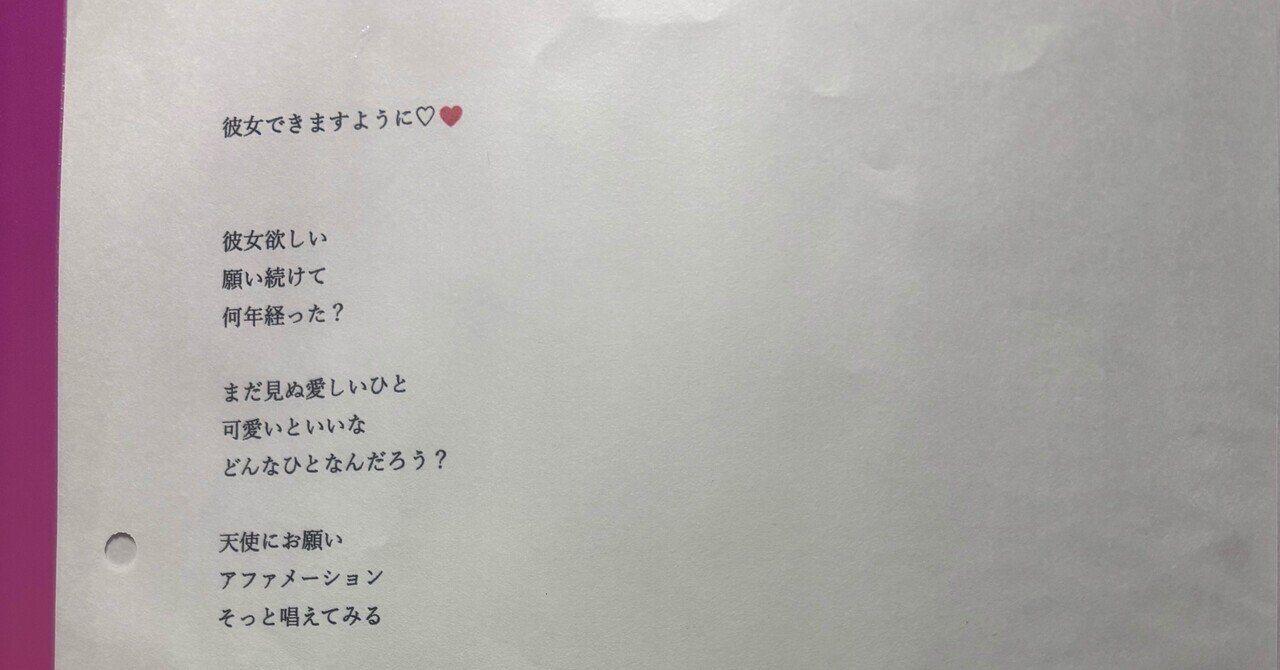 彼女できますように♡❤
彼女欲しい
願い続けて
何年経った？
まだ見ぬ愛しいひと
可愛いといいな
どんなひとなんだろう？
天使にお願い
アファメーション
そっと唱えてみる